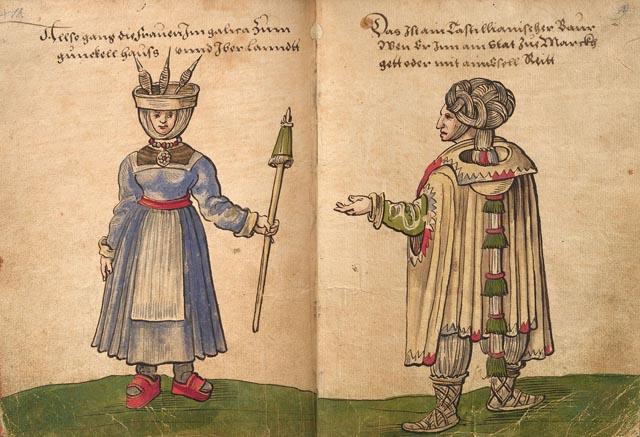 Allso gand die frawen Jm galica Zum
gunckell hauss vnnd Jber lanndtt
Das Ist ain Castillianischer Baur
Wen Er Zun ain Stat Zue Marckh
gett oder mit
Reitt